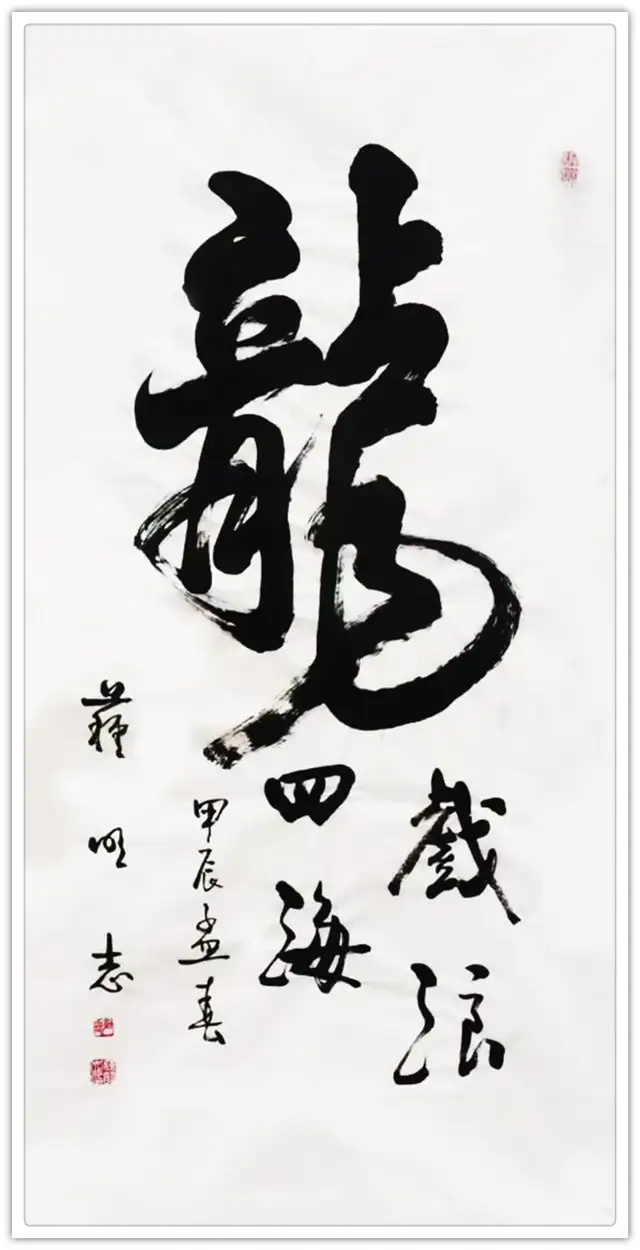 龍
戲浪
四海
甲辰孟春
明志